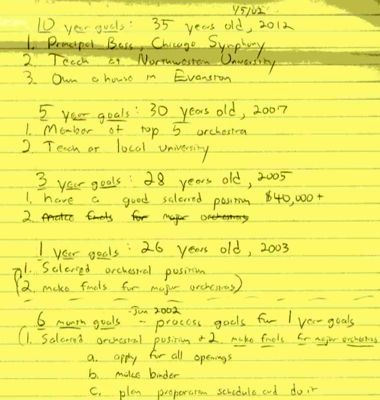 4/5/02
10 year goals: 35 years old, 2012
1. Principal Bass, Chicago Symphony
2. Teach at Northwestern University
3. Own a house in Evanston
5 year goals: 30 years old, 2007
1. Member of top 5 orchestra
2. Teach at local university
3 year goals: 28 years old, 2005
1. have a good salaried position $40,000+
2. make finals for major orchestras
1 year goals: 26 years old, 2003
1. Salaried orchestral position
(2. make finals for major orchestras)
- Jun 2002
6 month goals - process goals for 1 year goals
(1. Salaried orchestral position + 2. make finals for major orchestras
a. apply for all openings
b. make binder
c. plan preparation schedule and do it